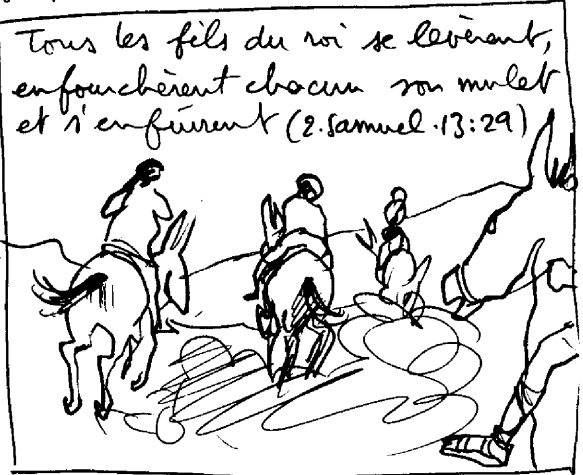 Tous les fils du roi se levèrent,
enfourchèrent chacun son mulet
et s'enfuirent (2.Samuel.13:29)